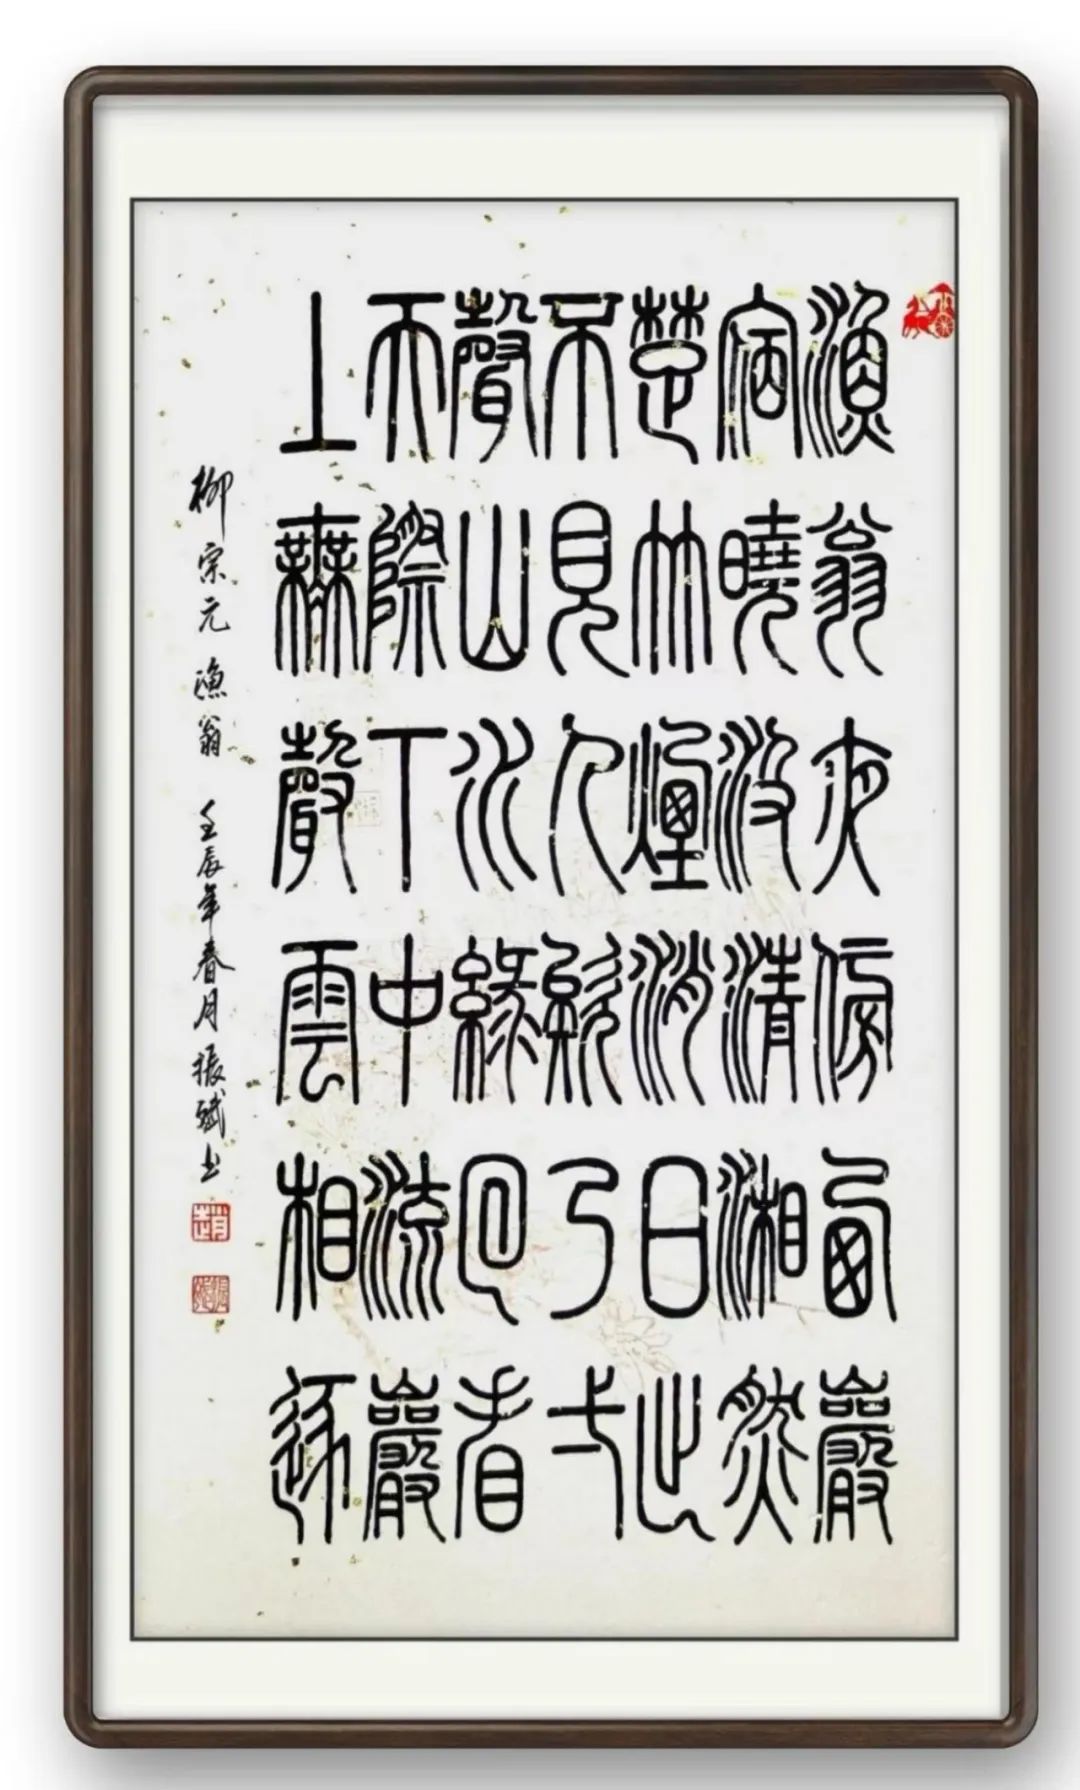 漁翁夜傍西巖
宿曉汲清湘然
楚竹煙消日出
不見人欸乃弌
聲山水綠回看
天際下中流巖
上無雲相逐
柳宗元漁翁 壬辰年春月振斌书
趙